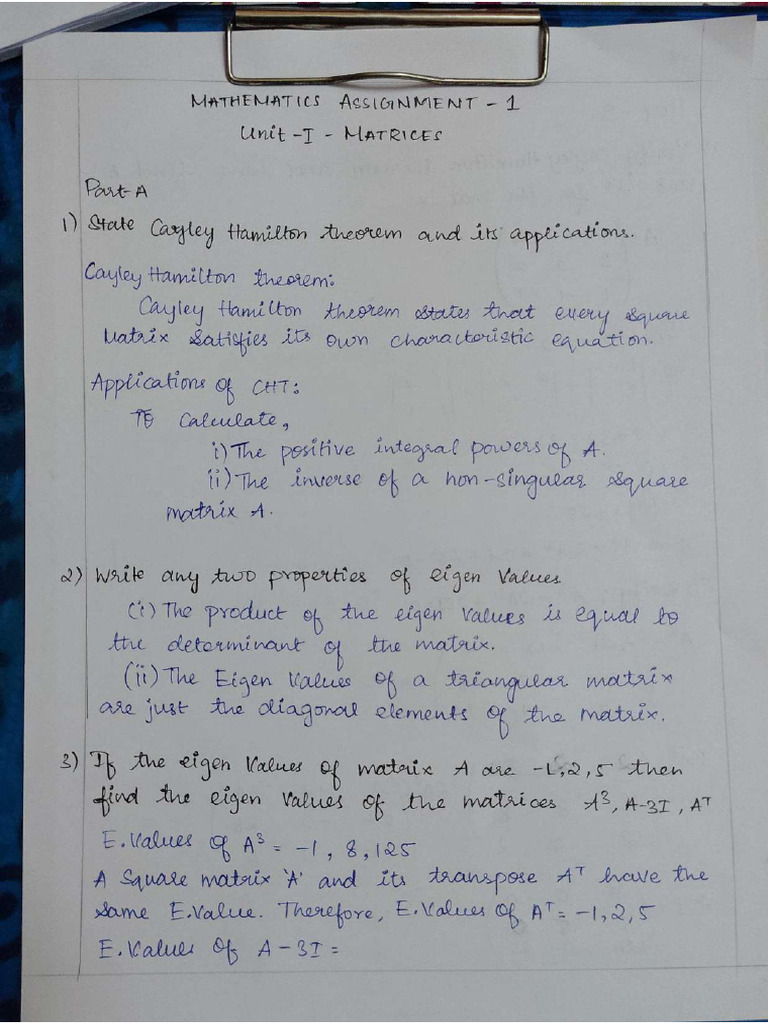 MATHEMATICS ASSIGNMENT - 1
Unit - I - MATRICES
Part-A
1) State Cayley Hamilton theorem and its applications.
Cayley Hamilton theorem:
Cayley Hamilton theorem states that every square
Matrix satisfies its own characteristic equation.
Applications of CHT:
To Calculate,
i) The positive integral powers of A.
ii) The inverse of a non-singular square
matrix A.
2) Write any two properties of eigen values
(i) The product of the eigen values is equal to
the determinant of the matrix.
(ii) The Eigen Values of a triangular matrix
are just the diagonal elements of the matrix.
3) If the eigen values of matrix A are -1, 2, 5 then
find the eigen values of the matrices A³, A-3I, Aᵀ
E. Values of A³ = -1, 8, 125
A Square matrix 'A' and its transpose Aᵀ have the
same E.Value. Therefore, E.Values of Aᵀ = -1, 2, 5
E. Values of A - 3I =